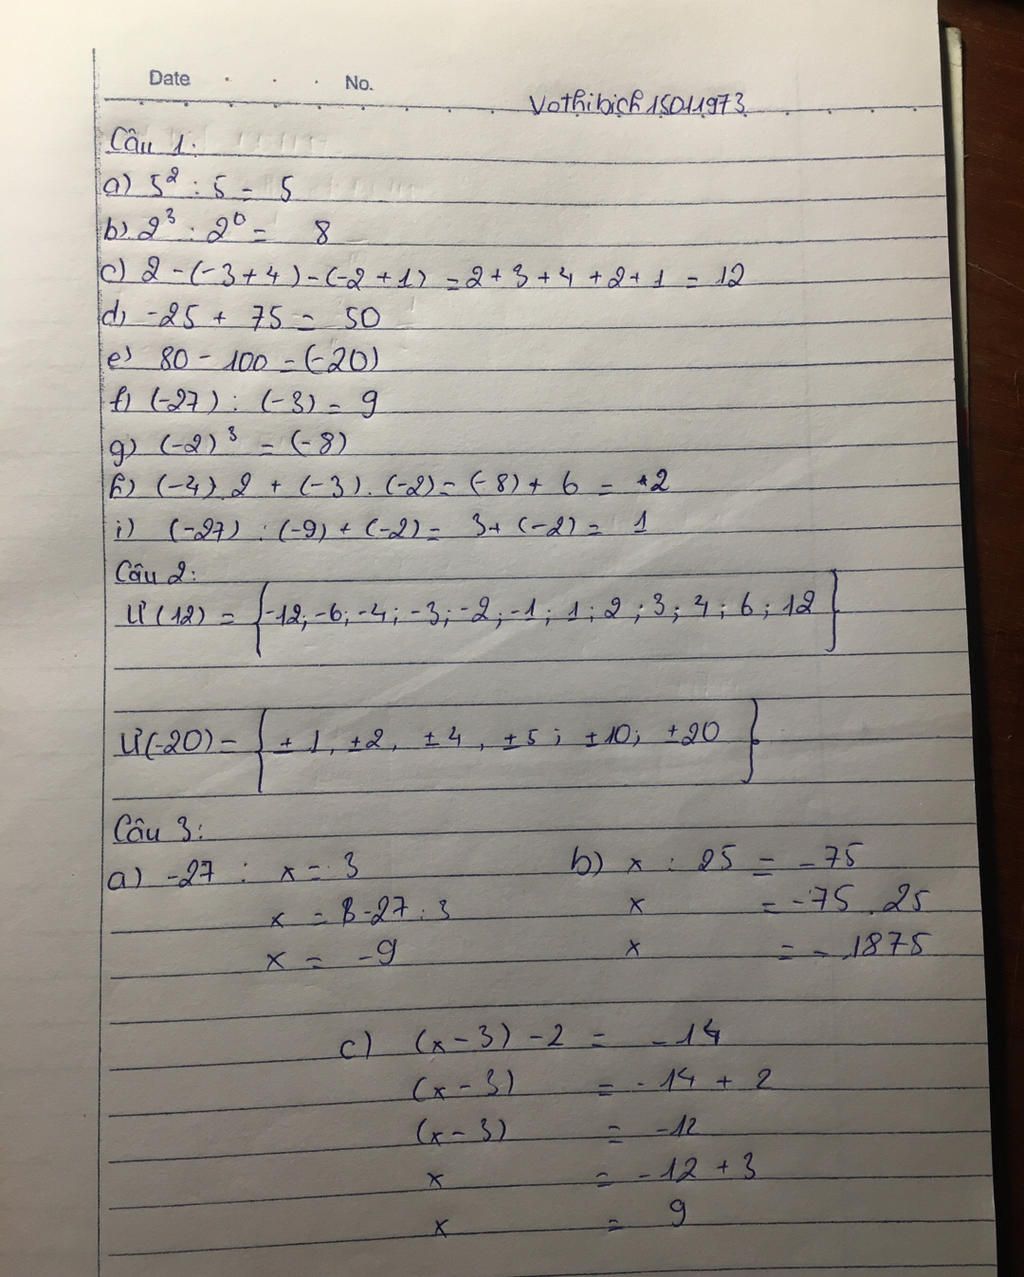 Date . . . No.
Vothibich15011973
Câu 1:
a) 5² : 5 = 5
b) 2³ : 2⁰ = 8
c) 2 - (-3 + 4) - (-2 + 1) = 2 + 3 + 4 + 2 + 1 = 12
d) -25 + 75 = 50
e) 80 - 100 = (-20)
f) (-27) : (-3) = 9
g) (-2)³ = (-8)
h) (-4) . 2 + (-3) . (-2) = (-8) + 6 = -2
i) (-27) : (-9) + (-2) = 3 + (-2) = 1
Câu 2:
Ư(12) = {-12; -6; -4; -3; -2; -1; 1; 2; 3; 4; 6; 12}
Ư(-20) = {±1, ±2, ±4, ±5; ±10; ±20}
Câu 3:
a) -27 : x = 3
x = -27 : 3
x = -9
b) x : 25 = -75
x = -75 . 25
x = -1875
c) (x - 3) - 2 = -14
(x - 3) = -14 + 2
(x - 3) = -12
x = -12 + 3
x = 9